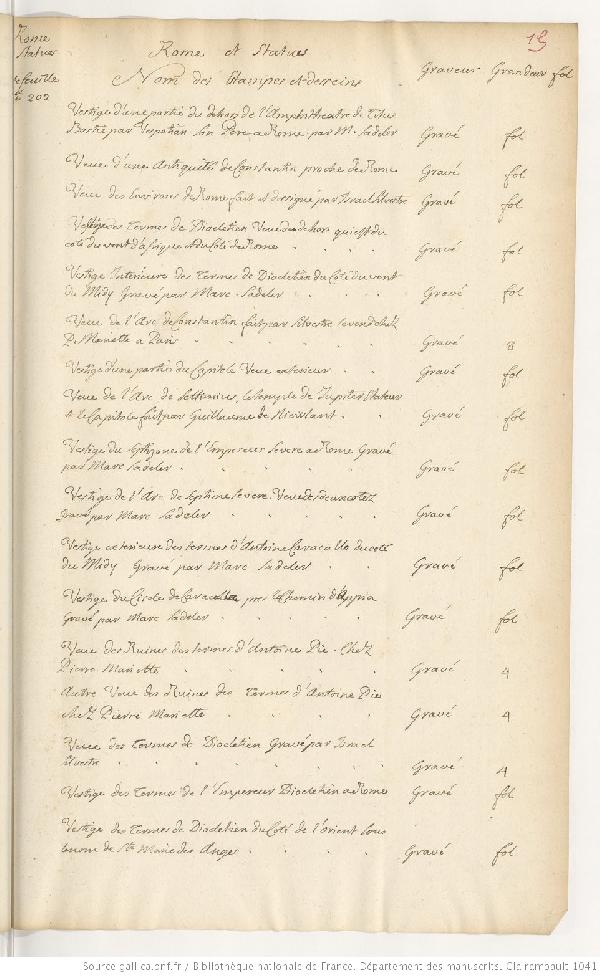 Rome
Statues
feuille
202
19
Rome et Statues
Nom des Estampes et desseins Graveur Grandeur fol
Vestige d'une partie du dehors de l'Amphiteatre de Titus
Bastie par Vespatian son Pere a Rome par M. Sadeler Gravé fol
Veue d'une Antiquité de Constantin proche de Rome Gravé fol
Veue des Environs de Rome fait et dessigné par Israel Silvestre Gravé fol
Vestige des Termes de Diocletien Veue de dehors qui est du
coté du vent d'afrique et du Coté de Rome Gravé fol
Vestige Interieure des Termes de Diocletien du Coté du vent
de Midy Gravé par Marc Sadeler Gravé fol
Veue de l'Arc de Constantin fait par Silvestre se vend chéz
P. Mariette a Paris Gravé 8
Vestige d'une partie du Capitole Veue exterieur Gravé fol
Veue de l'Arc de Settimius, le temple de Jupiter Stateur
et le Capitole fait par Guillaume de Gravé fol
Vestige du Septizone de l'Empereur Severe a Rome Gravé
par Marc Sadeler Gravé fol
Vestige de l'Arc de Septime Severe Veue de deux cotez
Gravé par Marc Sadeler Gravé fol
Vestige exterieure des termes d'Antoine Caracalle du coté
du Midy Gravé par Marc Sadeler Gravé fol
Vestige du Circle de Caracalla pres le Chemin d'Appia
Gravé par Marc Sadeler Gravé fol
Veue des Ruines des termes d'Antoine Pie. Chéz
Pierre Mariette Gravé 4
Autre Veue des Ruines des Termes d'Antoine Pie
chéz Pierre Mariette Gravé 4
Veue des Termes de Diocletien Gravé par Israel
Silvestre Gravé 4
Vestige des Termes de l'Empereur Diocletien a Rome Gravé fol
Vestige des Termes de Diocletien du Coté de l'orient sous
le nom de Ste Marie des Anges Gravé fol
Source gallica.bnf.fr / Bibliothèque nationale de France. Département des manuscrits. Clairambault 1041